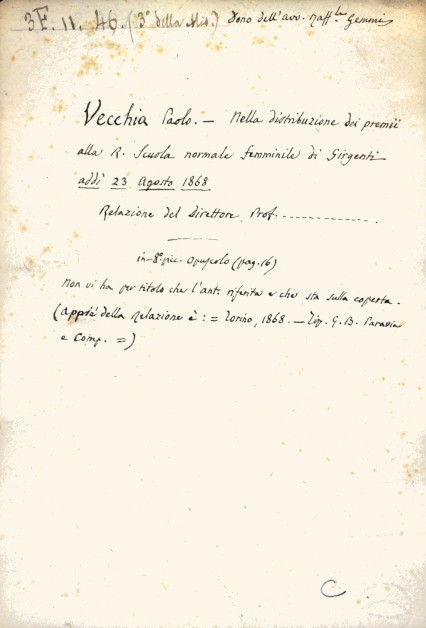 3F. 11. 46. (3ª della Mis.) Dono dell'avv. Raff.le Gemmi
Vecchia Paolo. — Nella distribuzione dei premii
alla R. Scuola normale femminile di Girgenti
addì 23 Agosto 1868
Relazione del Direttore Prof. ------------ .
in-8º pic. opuscolo (pag. 16)
Non vi ha per titolo che l'ant. riferita e che sta sulla coperta.
(Appiè della Relazione è: = Torino, 1868. — Tip. G. B. Paravia
e Comp. =)
C